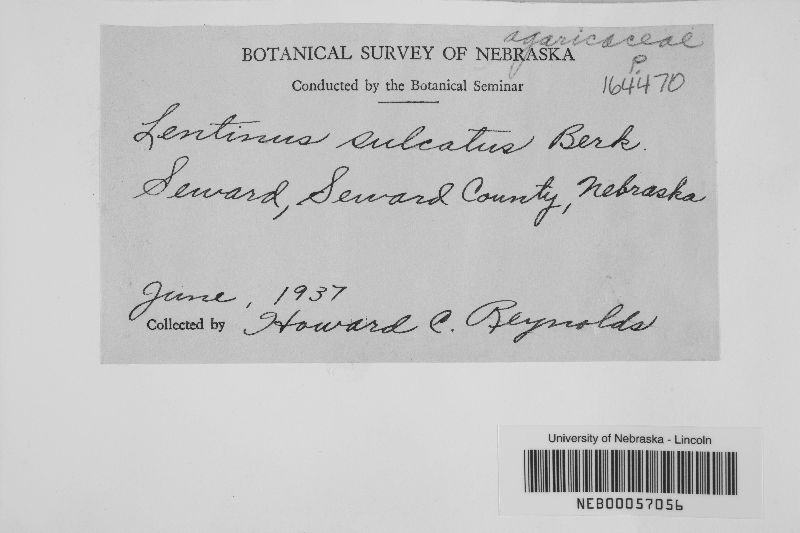 agaricaceae
BOTANICAL SURVEY OF NEBRASKA
P.
Conducted by the Botanical Seminar
164470
Lentinus sulcatus Berk.
Seward, Seward County, Nebraska
June, 1937
Collected by Howard C. Reynolds
University of Nebraska - Lincoln
NEB00057056